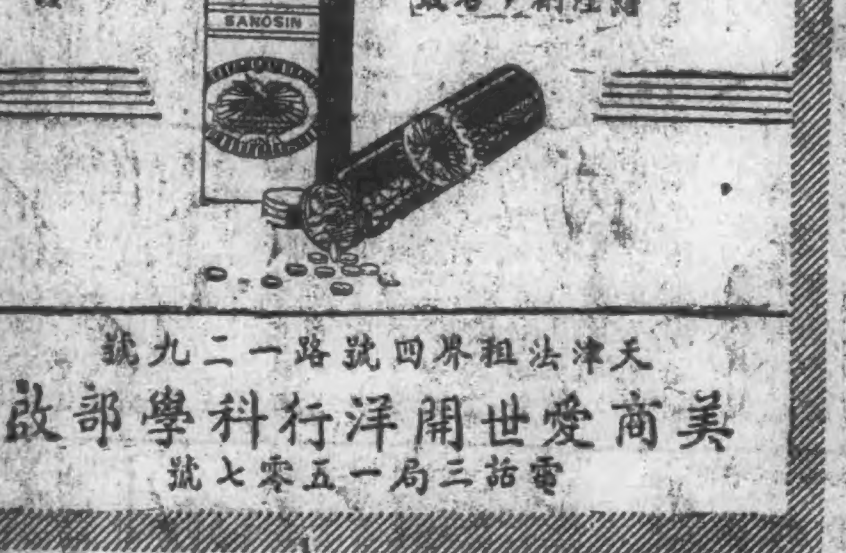 SANOSIN
天津法租界四號路一二九號
美商愛世開洋行科學部啟
電話三局一五零七號